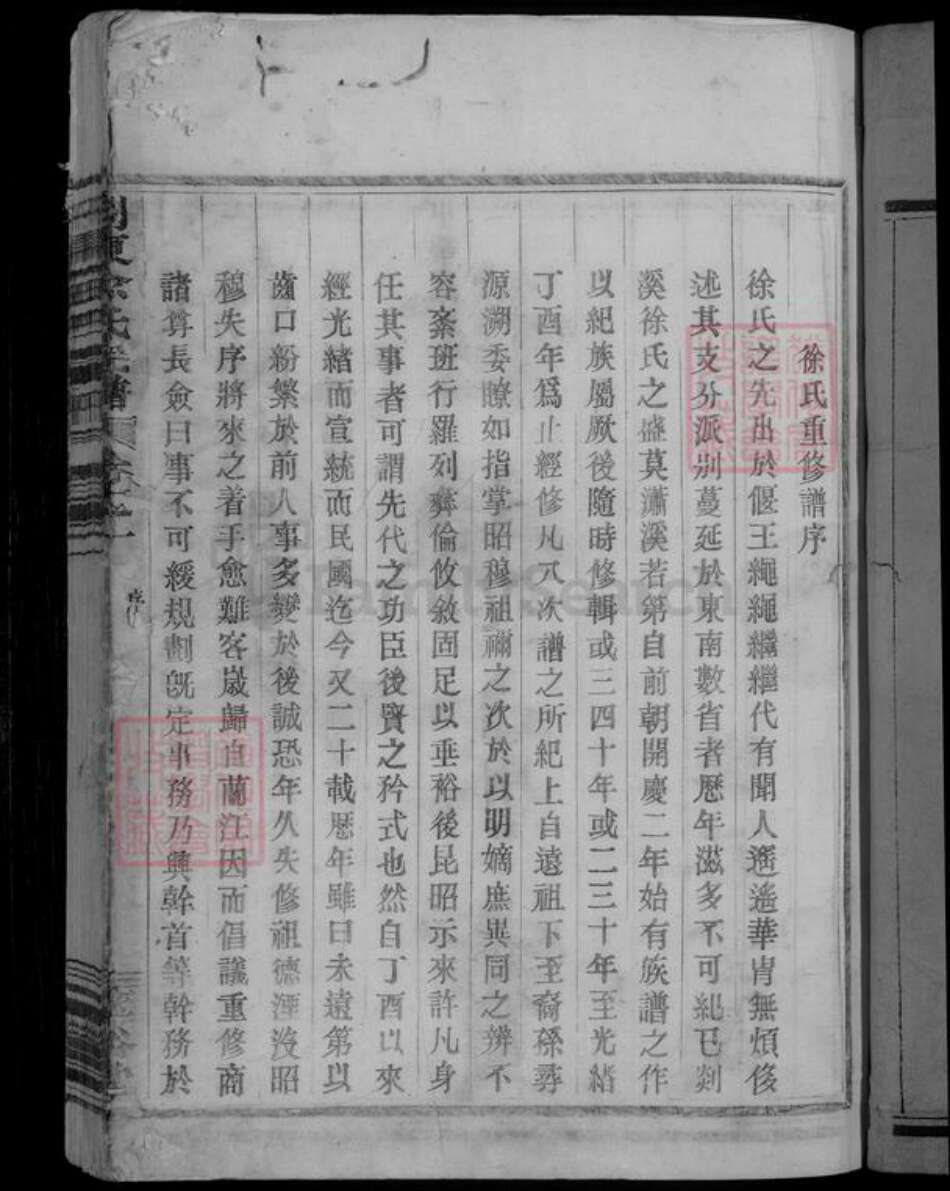 徐氏重修譜序
徐氏之先出於偃王繩繩繼繼代有聞人遙遙華胄無煩俊
述其支分派別蔓延於東南數省者歷年滋多不可紀已剡
溪徐氏之盛莫瀟溪若第自前朝開慶二年始有族譜之作
以紀族屬厥後隨時修輯或三四十年或二三十年至光緒
丁酉年爲止經修凡八次譜之所紀上自遠祖下至裔孫尋
源溯委瞭如指掌昭穆祖禰之次於以明嫡庶異同之辨不
容紊班行羅列彝倫攸敘固足以垂裕後昆昭示來許凡身
任其事者可謂先代之功臣後賢之矜式也然自丁酉以來
經光緒而宣統而民國迄今又二十載歷年雖曰未遠第以
齒口紛繁於前人事多變於後誠恐年久失修祖德湮沒昭
穆失序將來之着手愈難客歲歸自蘭江因而倡議重修商
諸尊長僉曰事不可緩規劃旣定事務乃興幹首等幹務於
剡東徐氏宗譜 卷之一
序